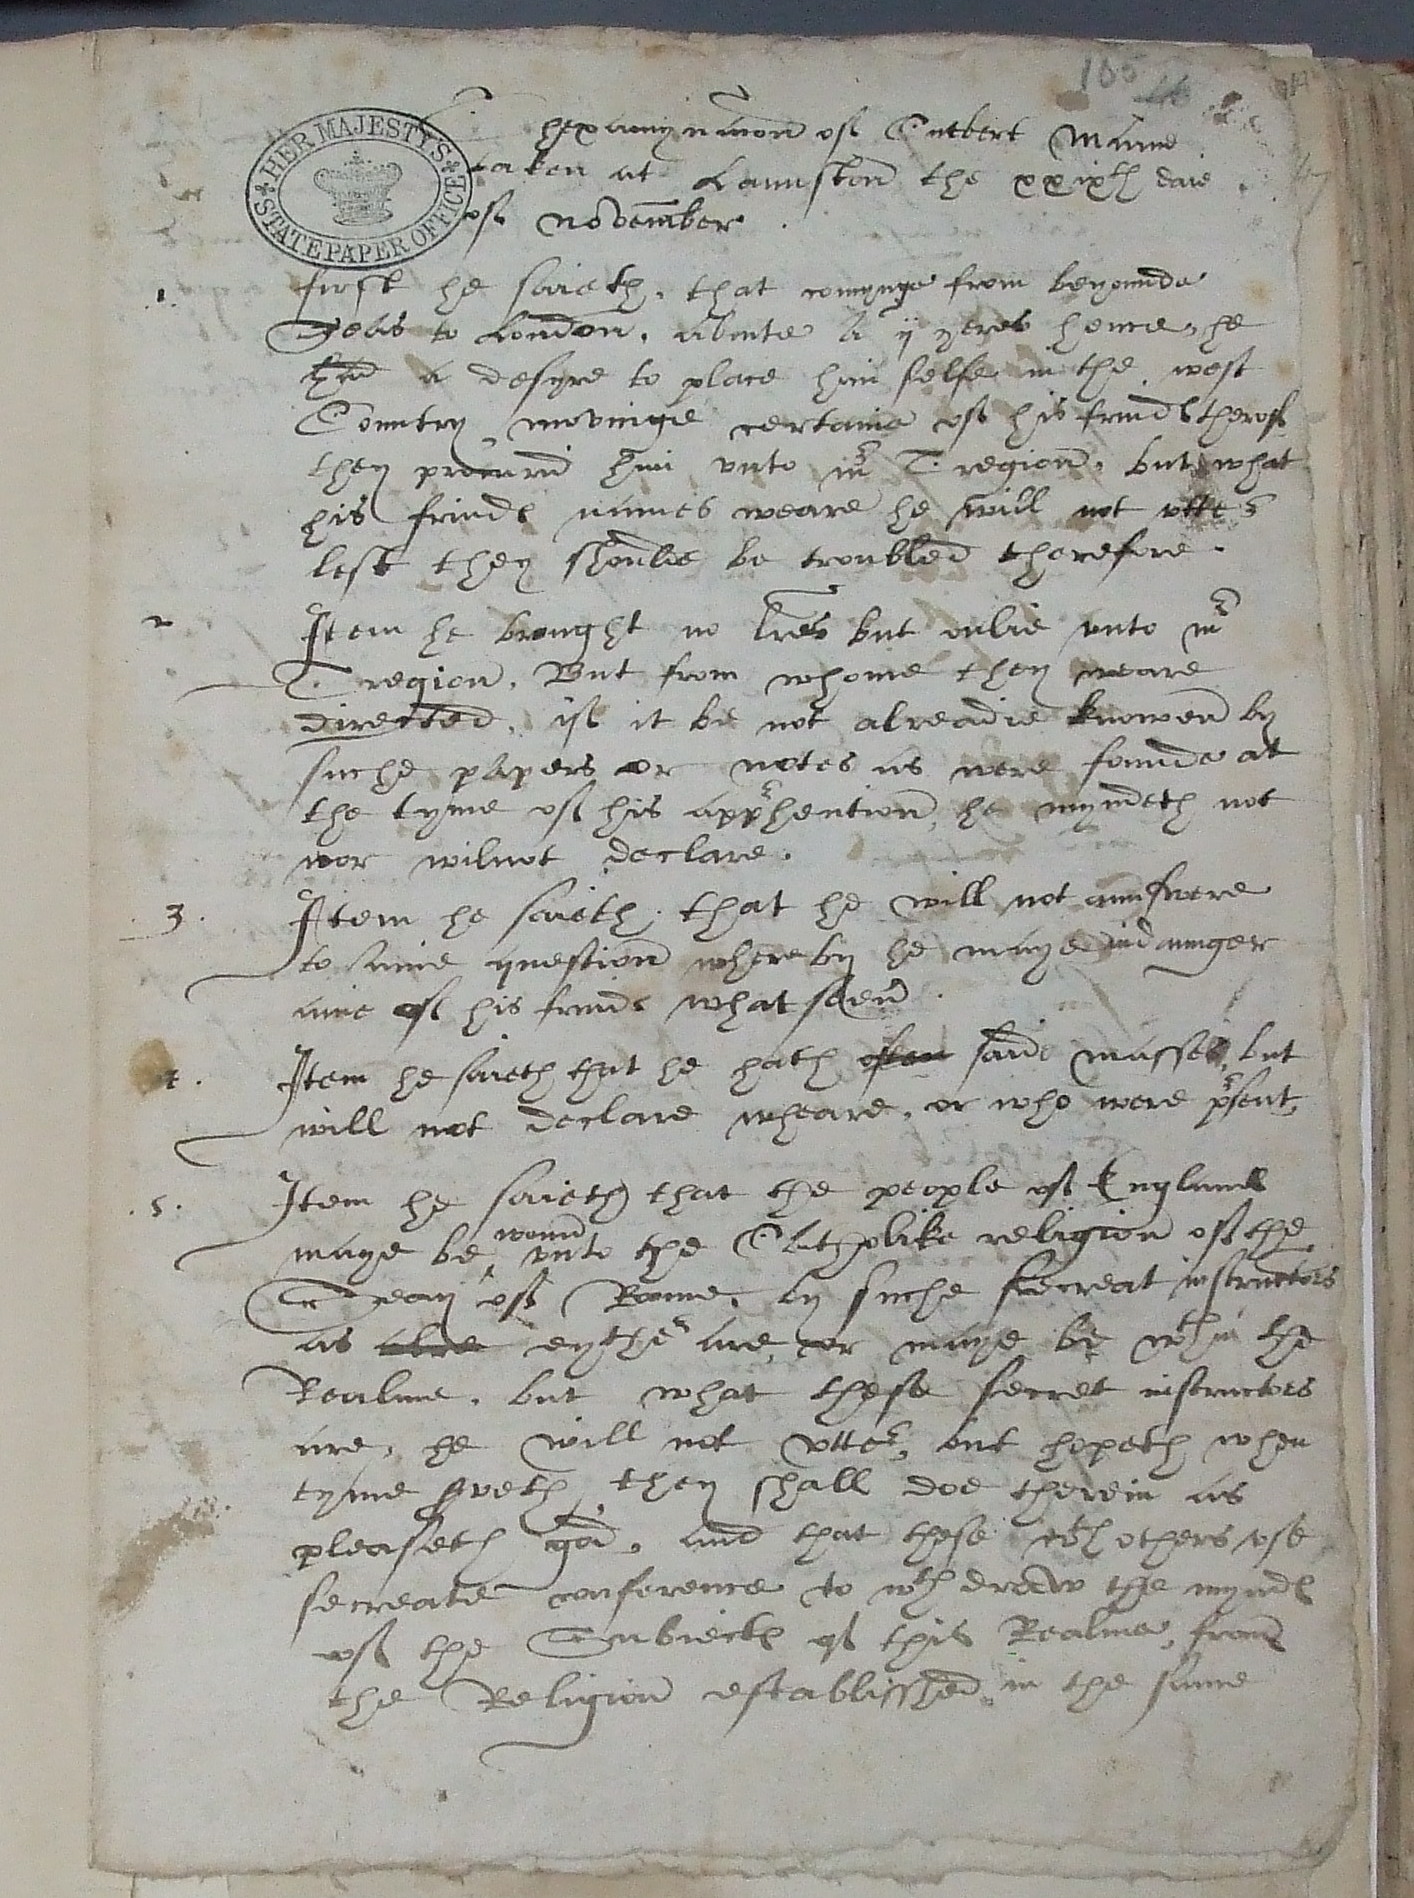 105
46
HER MAJESTY'S STATE PAPER OFFICE
Thexamynacion of Cutbert Maine
taken at Launston the xxixth daie
of november.
1. first he saieth, that comynge from beyounde
Seas to London, aboute a ij yeres hence, he
had a desyre to place him selfe in the west
Country, movinge certaine of his frinds therof
they procurid him unto mr Tregion, but what
his frinds names weare he will not utter
lest they shoulde be troubled therefore.
2 Item he brought no lres but onlie unto mr
Tregion, But from whome they weare
directed, if it be not alreadie knowen by
suche papers or notes as were founde at
the tyme of his apprhention, he myndeth not
nor wilnot declare.
3. Item he saieth, that he will not aunswere
to anie question whereby he maye indaunger
anie of his frinds what soeur.
4. Item he saieth that he hath often said masse, but
will not declare wheare, or who were prsent,
5. Item he saieth that the people of England
maye be wonn unto the Catholike religion of the
Sea of Rome, by suche secreat instructors
as alre eyther are or maye be wthin the
Realme, but what these secret instructors
are, he will not utter, but hopeth when
tyme srveth, they shall doe therein as
pleaseth god, and that these wth others use
secreate conference to wthdraw the mynds
of the Subiects of this Realme, from
the Religion establisshed in the same